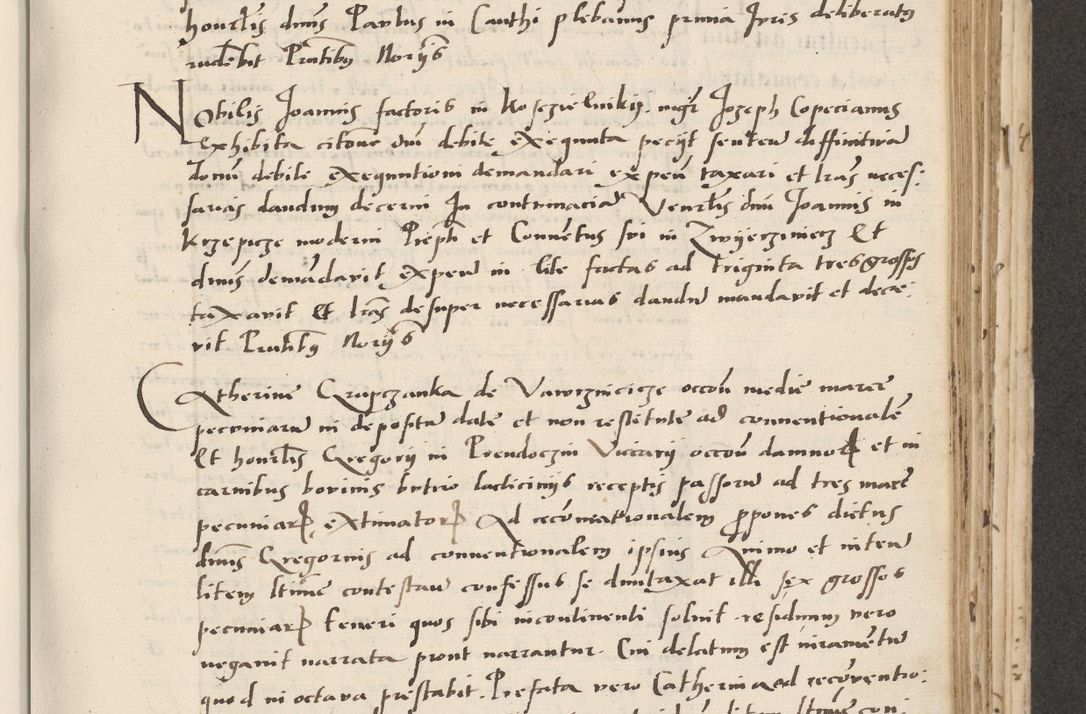 honorlis dnus Paulus in Cauthi plebanus prima Juris deliberato
rudebit Pntibus Norijs
Nobilis Joannis factoris in Kosczielnikij mgr Joseph Copecianus
exhibita citone dni debite exequuta pecijt senten diffinitiva
donu debite exequutioni demandari expen taxari et lras neces:
sarias dandum decerni In contumacia Venrlis dni Joannis in
Krzepicze moderni Prepti et Conventus sui in Zwijerziniecz Et
dnus demadavit expen in lite factas ad triginta tres grossos
taxavit Et lras desuper necessarias dandu mandavit et decre:
vit Pntibus Norijs
Catherine Crapczanka de Vawrzincicze occon medie marce
pecuniaru in depositu date et non restitute ad conventionale
Et honrlis Gregorij in Prendoczin Vicarij occon damnor et in
carnibus bovinis butiro lacticinijs receptis passoru ad tres marc
pecuniar extimator Ad reconventionalem ppones dictus
dnus Gregorius ad conventionalem ipsius Animo et inten
litem ltime contestan confessus se duntaxat illi sex grossos
pecuniar teneri quos sibi incontinenti solvit residuum vero
negavit narrata prout narrantur. Cui delatum est iuramentu
quod in octava prestabit. Prefata vero Catherina ad reconventio: